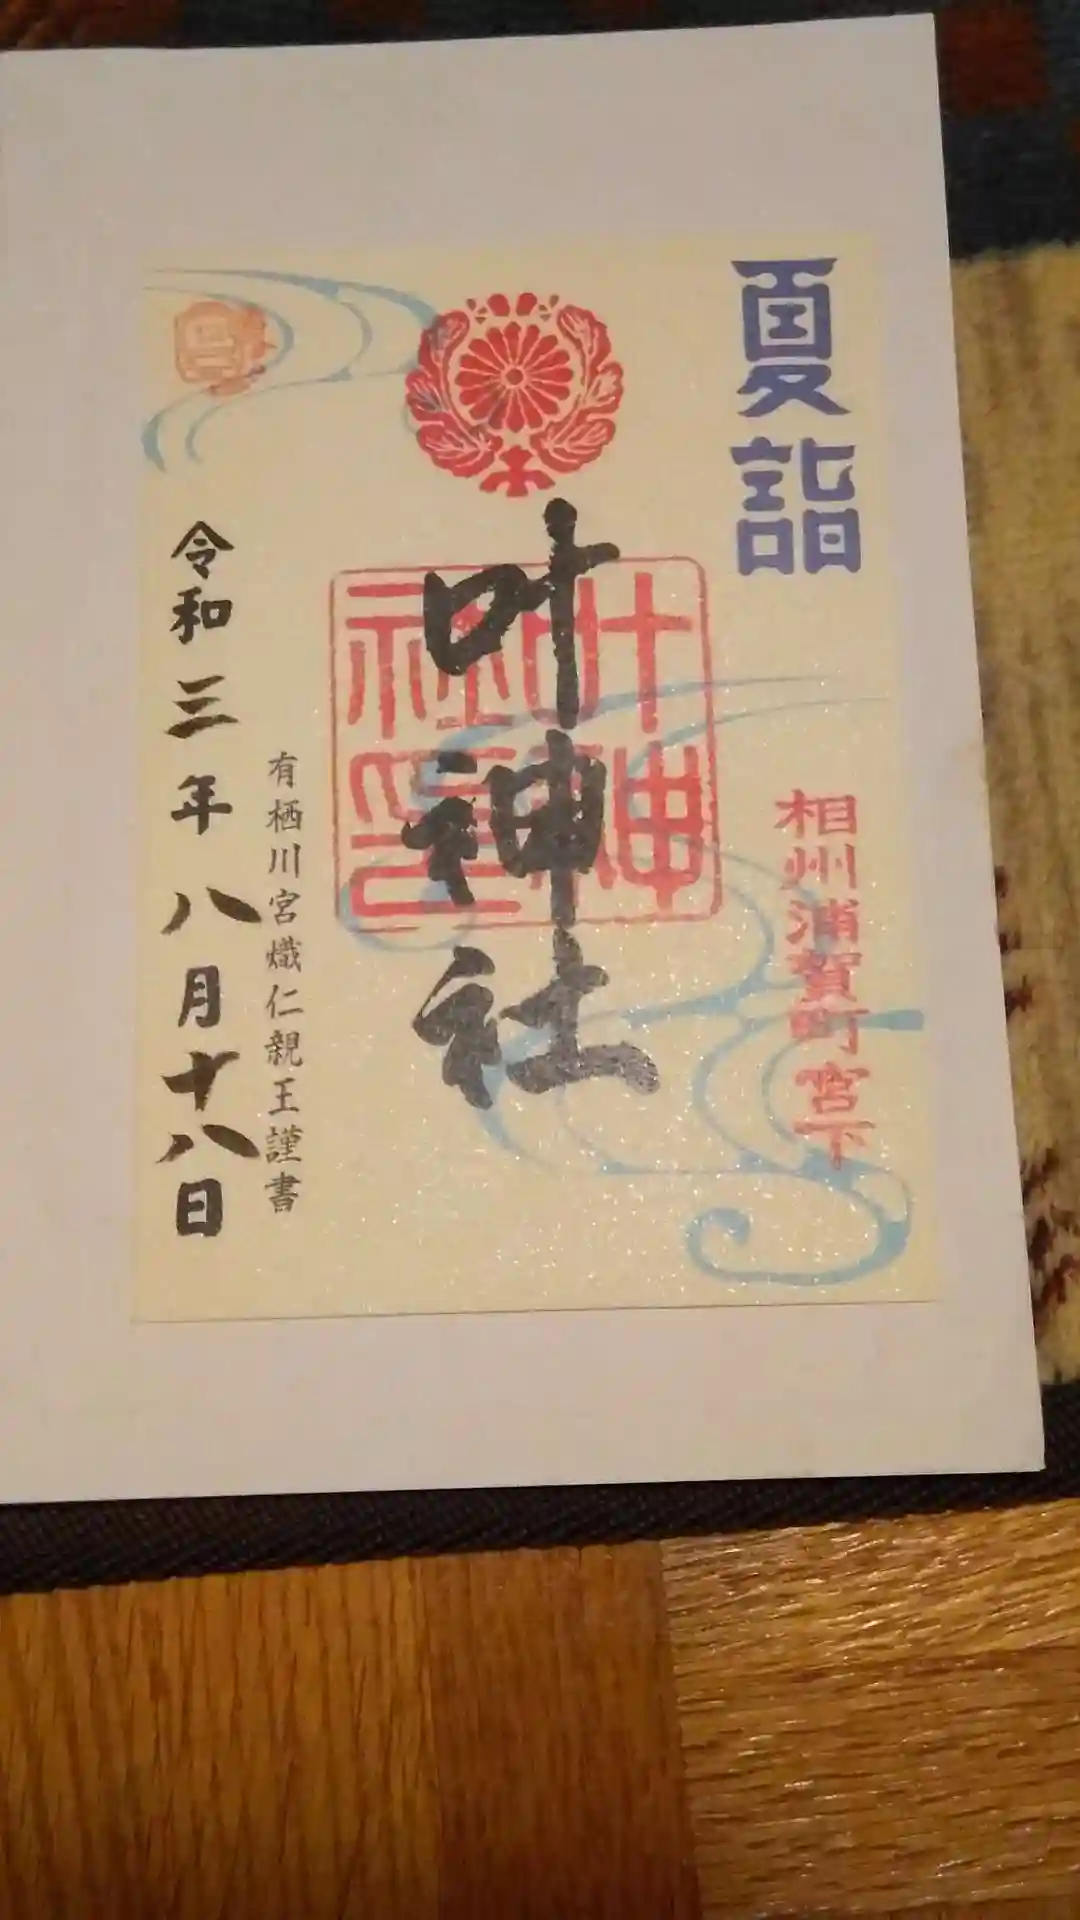 夏詣
相州浦賀町宮下
叶神社
叶神社印
有栖川宮熾仁親王謹書
令和三年八月十八日